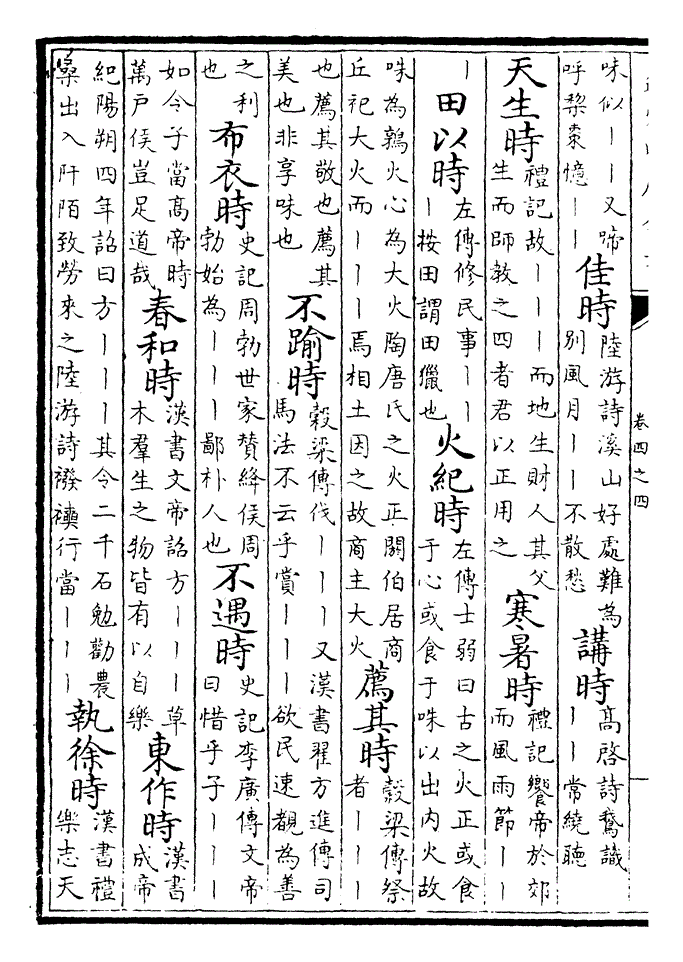 味似丨丨又啼
呼棃棗憶丨丨
佳時
陸游詩溪山好處難為
別風月丨丨不散愁
講時
髙啓詩鵞識
丨丨常繞聽
天生時
禮記故丨丨丨而地生財人其父
生而師教之四者君以正用之
寒暑時
禮記饗帝於郊
而風雨節丨丨
丨
田以時
左傳修民事丨丨
丨按田謂田獵也
火紀時
左傳士弱曰古之火正或食
于心或食于咮以出内火故
咮為鶉火心為大火陶唐氏之火正閼伯居商
丘祀大火而丨丨丨焉相土因之故商主大火
薦其時
穀梁傳祭
者丨丨丨
也薦其敬也薦其
美也非享味也
不踰時
穀梁傳伐丨丨丨又漢書翟方進傳司
馬法不云乎賞丨丨丨欲民速覩為善
之利
也
布衣時
史記周勃世家賛絳侯周
勃始為丨丨丨鄙朴人也
不遇時
史記李廣傳文帝
曰惜乎子丨丨丨
如令子當髙帝時
萬戶侯豈足道哉
春和時
漢書文帝詔方丨丨丨草
木羣生之物皆有以自樂
東作時
漢書
成帝
紀陽朔四年詔曰方丨丨丨其令二千石勉勸農
桑出入阡陌致勞來之陸游詩襏襫行當丨丨丨
執徐時
漢書禮
樂志天
卷四之四